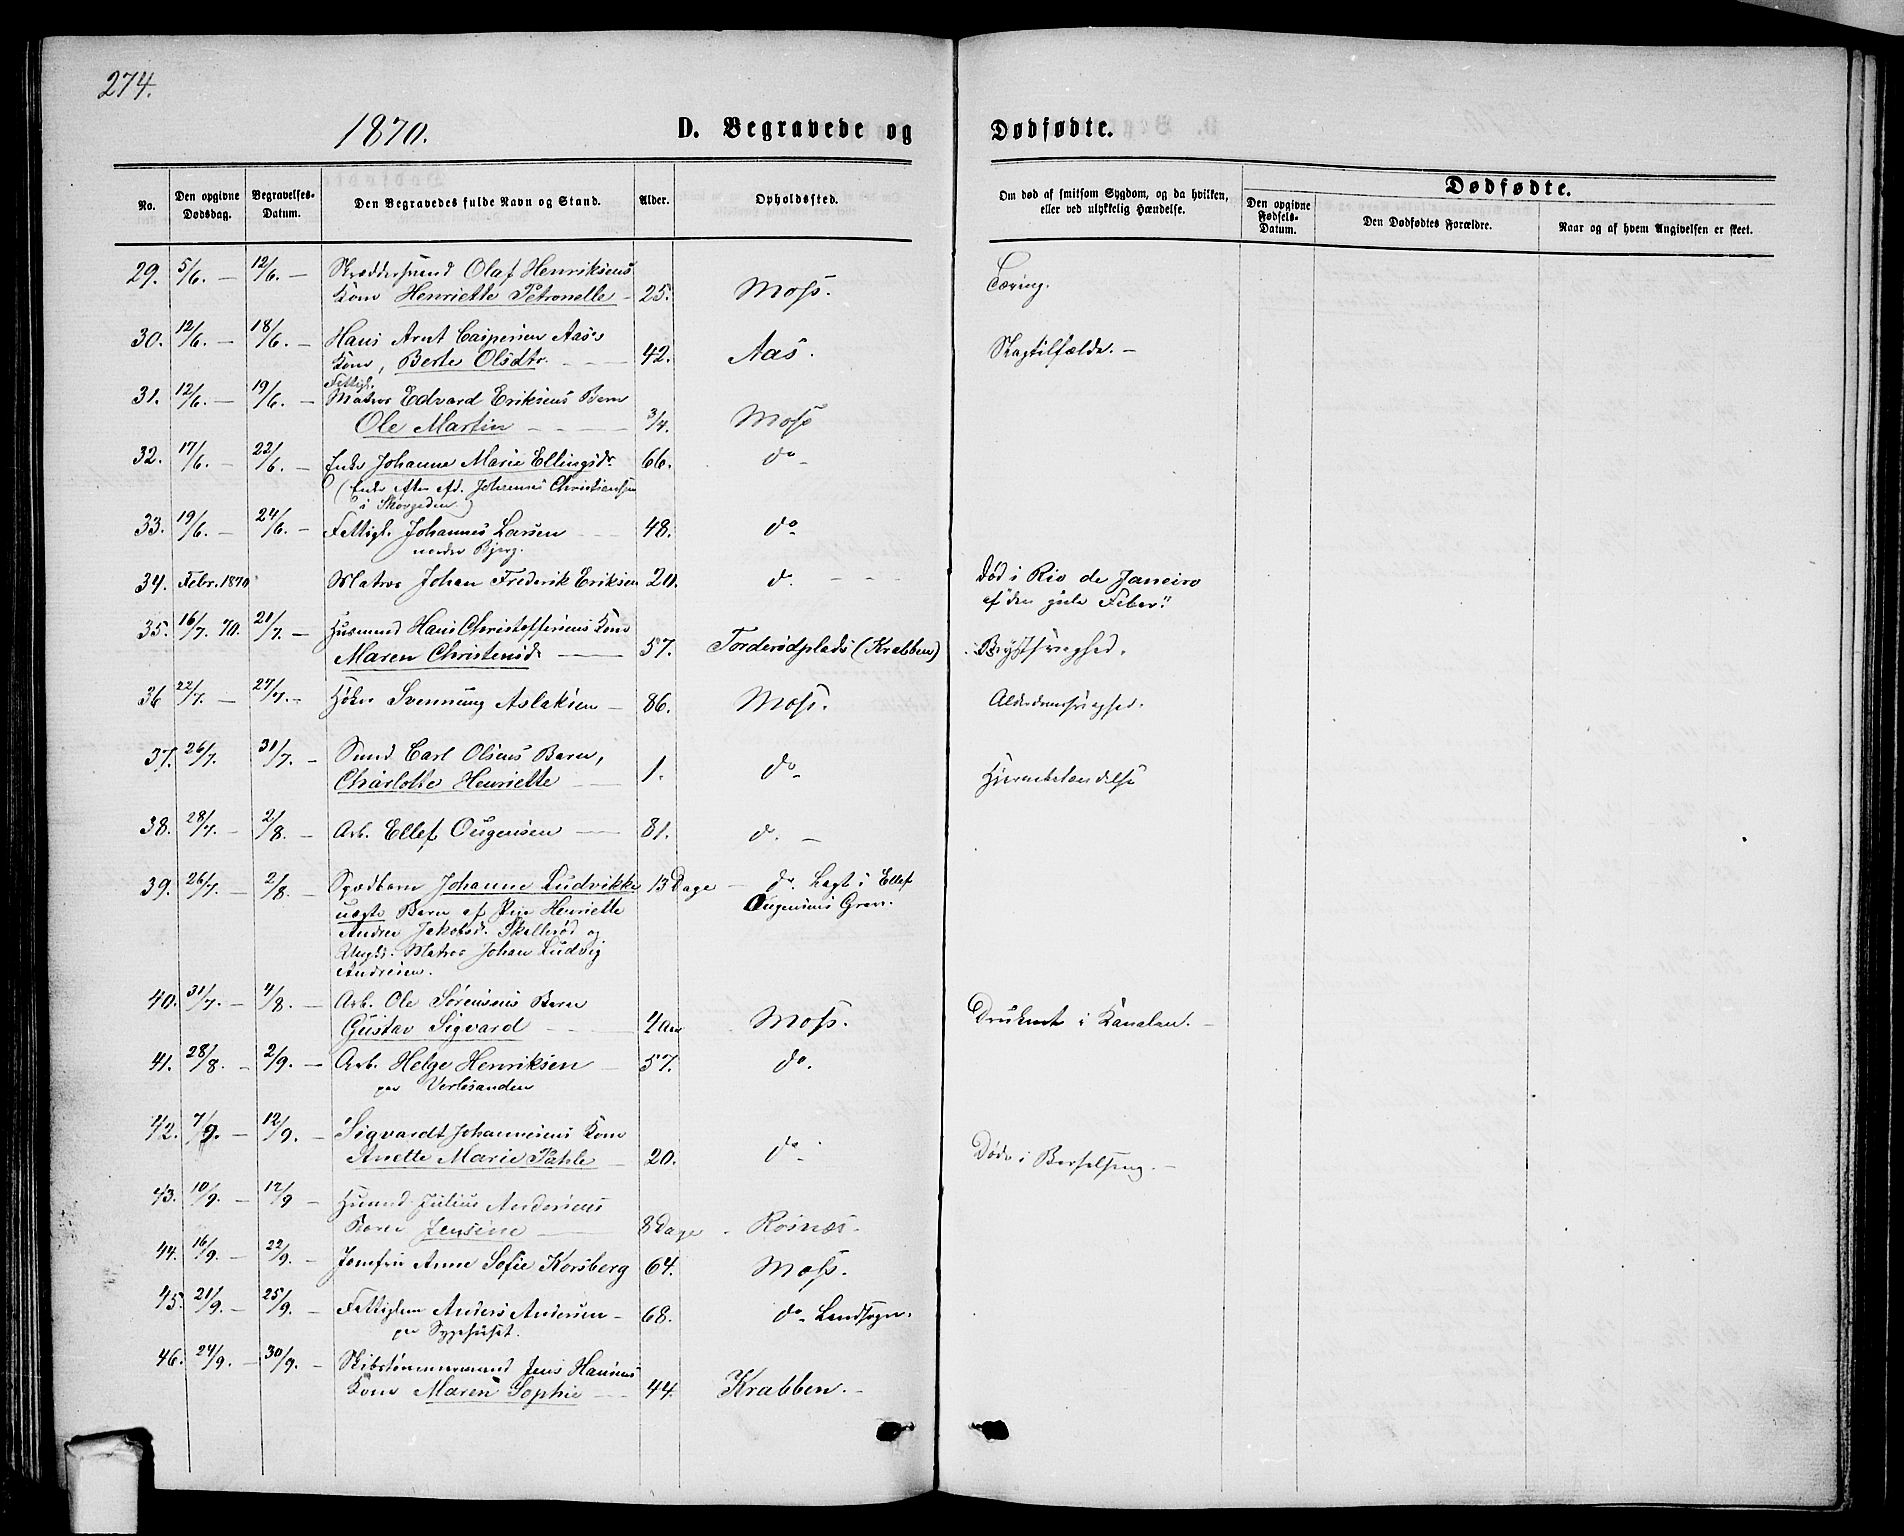 274.
1870.
D. Begravede og Dødfødte.
No. Den opgivne Dødsdag. Begravelses-Datum. Den Begravedes fulde Navn og Stand. Alder. Opholdssted. Om død af smitsom Sygdom, og da hvilken, eller ved ulykkelig Hændelse. Dødfødte.
Den opgivne Fødsels-Datum. Den Dødfødtes Forældre. Naar og af hvem Angivelsen er skeet.
29. 5/6. — 12/6. — Skræddersvend Olaf Henriksens
Kone Henriette Petronelle — 25. Moss. Tæring.
30. 12/6. — 18/6. — Hans Arnt Caspersen Aas's
Kone, Berte Olsdtr. 42. Aas. Slagtilfælde. —
31. 12/6. — 19/6. — Fattigl.
Matros Edvard Eriksens Barn
Ole Martin 3/4. Moss
32. 17/6. — 22/6. — Enke Johanne Marie Ellingsdr. 66. do
(Enke efter afd. Johannes Christiansen
i Skovgeden)
33. 19/6. — 24/6. — Fattigl. Johannes Larsen 48. do
nordre Bjerg.
34. Febr. 1870 Matros Johan Frederik Eriksen 20. do. Død i Rio de Janeiro
af "den gule Feber."
35. 16/7. 70. 21/7. — Husmand Hans Christoffersens Kone
Maren Christensd. 57. Torderødplads (Krabben) Brystsvaghed.
36 22/7. — 27/7. — Høker Svennung Aslaksen — 86. Moss. Alderdomssvaghed.
37. 26/7. 31/7. — Smed Carl Olsens Barn,
Charlotte Henriette 1. do Hjernebetændelse
38. 28/7. — 2/8. — Arb. Ellef Ougensen 81. do. —
39. 26/7. — 2/8. — Spædbarn Johanne Ludvikke 13 Dage — do. Lagt i Ellef
uægte Barn af Pige Henriette Ougensens Grav.
Andrea Jakobsd. Skallerød og
Ungk. Matros Johan Ludvig
Andresen.
40. 31/7. — 4/8. — Arb. Ole Sørensens Barn
Gustav Sigvard 4 Aar Moss. Druknet i Kanalen. —
41. 28/8. — 2/9. — Arb. Helge Henriksen 57. do.
paa Verlesanden
42. 7/9. — 12/9. — Sigvardt Johannesens Kone
Anette Marie Pahle 20. do Døde i Barselseng. —
43. 10/9. — 12/9 — Husmd. Julius Andersens
Barn Jensine 8 Dage Rosnæs.
44. 16/9. — 22/9. — Jomfru Anne Sofie Korsberg 64. Moss.
45. 21/9. — 25/9. — Fattiglem Anders Andersen — 68. do Landsogn.
paa Sygehuset.
46. 24/9. — 30/9. — Skibstømmermand Jens Hansens
Kone Maren Sophie 44. Krabben. —